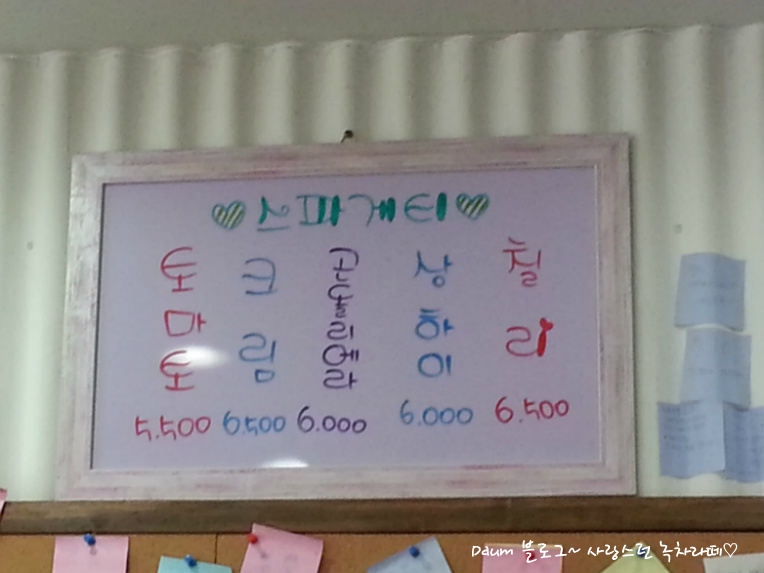 ♡스파게티♡
토마토
5.500
크림
6.500
6.000
상하이
6.000
칠리
6.500
Daum 블로그~ 사랑스런 녹차라떼♡